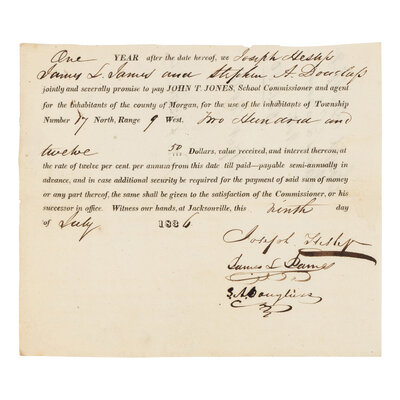 One YEAR after the date hereof, we Joseph Heslep
James L. James and Stephen A. Douglass
jointly and severally promise to pay JOHN T. JONES, School Commissioner and agent
for the Inhabitants of the county of Morgan, for the use of the inhabitants of Township
Number 17 North, Range 9 West. Two Hundred and
twelve 50/100 Dollars, value received, and interest thereon, at
the rate of twelve per cent. per annum from this date till paid—payable semi-annually in
advance, and in case additional security be required for the payment of said sum of money
or any part thereof, the same shall be given to the satisfaction of the Commissioner, or his
successor in office. Witness our hands, at Jacksonville, this ninth day
of July 1836.
Joseph Heslep
James L James
S. A. Douglass